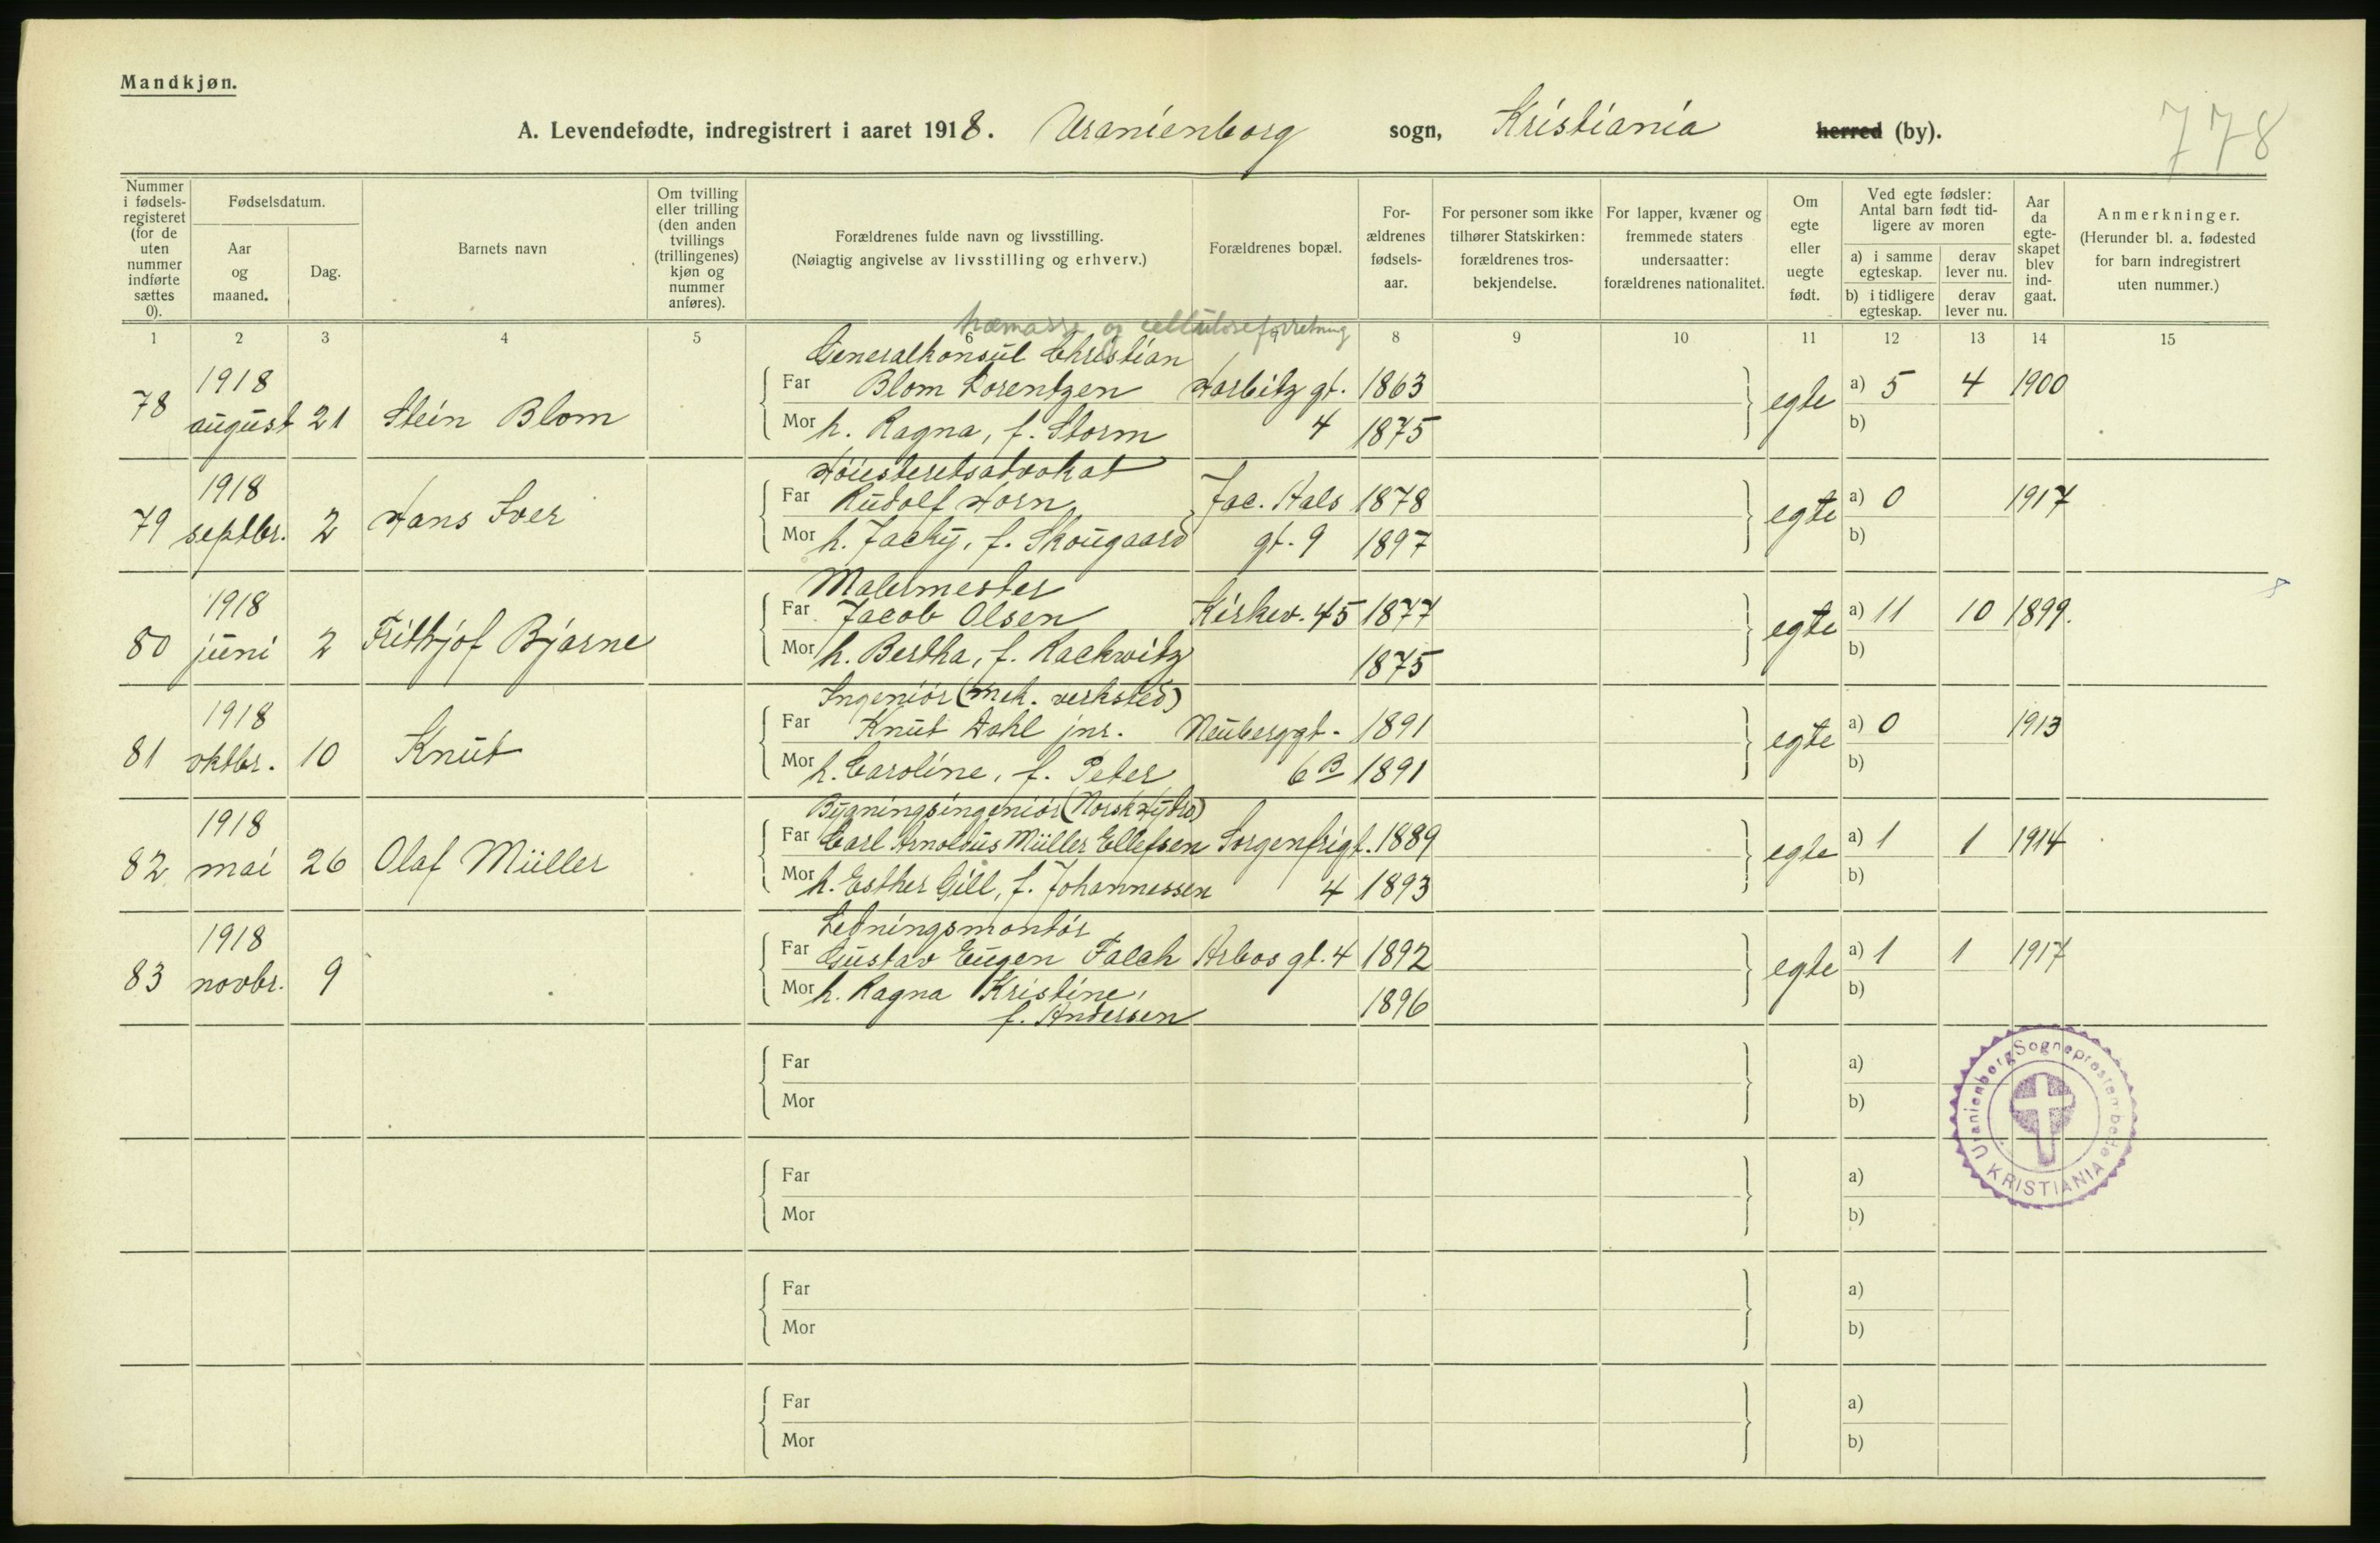 Mandkjøn.
A. Levendefødte, indregistrert i aaret 1918. Uranienborg sogn, Kristiania herred (by).
778
Nummer i fødsels-registeret (for de uten nummer indførte sættes 0).
Fødselsdatum.
Aar og maaned.
Dag.
Barnets navn
Om tvilling eller trilling (den anden tvillings (trillingenes) kjøn og nummer anføres).
Forældrenes fulde navn og livsstilling.
(Nøiagtig angivelse av livsstilling og erhverv.)
Forældrenes bopæl.
For-ældrenes fødsels-aar.
For personer som ikke tilhører Statskirken: forældrenes tros-bekjendelse.
For lapper, kvæner og fremmede staters undersaatter: forældrenes nationalitet.
Om egte eller uegte født.
Ved egte fødsler: Antal barn født tid-ligere av moren
a) i samme egteskap.
derav lever nu.
b) i tidligere egteskap.
derav lever nu.
Aar da egte-skapet blev ind-gaat.
Anmerkninger.
(Herunder bl. a. fødested for barn indregistrert uten nummer.)
1 2 3 4 5 6 7 8 9 10 11 12 13 14 15
træmasse og celluloseforretning
Generalkonsul Christian
78 1918 august 21 Stein Blom Far Blom Lorentzen Harbitz gt. 1863 egte a) 5 4 1900
Mor h. Ragna, f. Storm 4 1875 b)
Høiesteretsadvokat
79 1918 septbr. 2 Hans Iver Far Rudolf Horn Jac. Aals 1878 egte a) 0 1917
Mor h. Jacky, f. Skougaard gt. 9 1897 b)
Malermester
80 1918 juni 2 Frithjof Bjarne Far Jacob Olsen Kirkev. 45 1877 egte a) 11 10 1899.
Mor h. Bertha, f. Rackwitz 1875 b)
Ingeniør (mek. verksted)
81 1918 oktbr. 10 Knut Far Knut Dahl jnr. Neuberggt. 1891 egte a) 0 1913
Mor h. Caroline, f. Peter 6 B 1891 b)
Bygningsingeniør (Norsk Hydro)
82 1918 mai 26 Olaf Müller Far Carl Arnoldus Müller Ellefsen Sorgenfrigt. 1889 egte a) 1 1 1914
Mor h. Esther Gill, f. Johannessen 4 1893 b)
Ledningsmontør
83 1918 novbr. 9 Far Gustav Eugen Falch Arbos gt. 4 1892 egte a) 1 1 1917
Mor h. Ragna Kristine, 1896 b)
f. Andersen
Far a)
Mor b)
Uranienborg Sogneprestembede
KRISTIANIA
Far a)
Mor b)
Far a)
Mor b)
Far a)
Mor b)